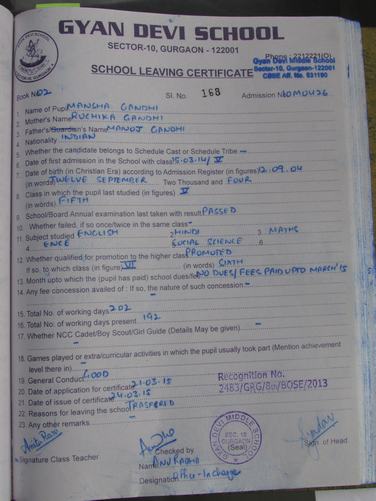 GYAN DEVI SCHOOL
SECTOR-10, GURGAON - 122001
Phone : 2212221(O)
Gyan Devi Middle School
Sector-10, Gurgaon-122001
CBSE Aff. No. 531190
SCHOOL LEAVING CERTIFICATE
Book No 02 Sl. No. 168 Admission No
1. Name of Pupil MANSHA GANDHI
2. Mother's Name RUCHIKA GANDHI
3. Father's/Guardian's Name MANOJ GANDHI
4. Nationality INDIAN
5. Whether the candidate belongs to Schedule Cast or Schedule Tribe -
6. Date of first admission in the School with class 15.03.14/ V
7. Date of birth (in Christian Era) according to Admission Register (in figures) 12.09.04
(in words) TWELVE SEPTEMBER Two Thousand and FOUR
8. Class in which the pupil last studied (in figures) V
(in words) FIFTH
9. School/Board Annual examination last taken with result PASSED
10. Whether failed, if so once/twice in the same class -
11. Subject studied 1. ENGLISH 2. HINDI 3. MATHS
4. ENCE 5. SOCIAL SCIENCE 6.
12. Whether qualified for promotion to the higher class PROMOTED
If so, to which class (in figure) VI (in words) SIXTH
13. Month upto which the (pupil has paid) school dues/fee NO DUES/ FEES PAID UPTO MARCH'15
14. Any fee concession availed of : If so, the nature of such concession -
15. Total No. of working days 202
16. Total No. of working days present 192
17. Whether NCC Cadet/Boy Scout/Girl Guide (Details May be given) -
18. Games played or extra/curricular activities in which the pupil usually took part (Mention achievement
level there in) -
19. General Conduct GOOD
20. Date of application for certificate 21.03.15
21. Date of issue of certificate 24.03.15
22. Reasons for leaving the school TRASFERED
23. Any other remarks -
Recognition No.
2483/GRG/8th/BOSE/2013
GYAN DEVI MIDDLE SCHOOL
SEC. 10
(Seal)
GURGAON
Signature Class Teacher
Checked by
Name ANURADHA
Designation Office-Incharge
Sign. of Head